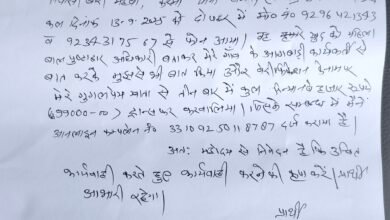 कल दिनांक 13-9-2025 को दो पहर में मो० नं० 9296421393
व 9234317567 से फोन आया। खुद को महिला
बाल पुष्टाहार अधिकारी बताकर मेरे गाँव के आंगनबाड़ी कार्यकर्ती से
बात करके मुझसे भी बात किया और वेरीफिकेशन के नाम पर
मेरे गूगल पे खाता से तीन बार में कुल निन्यानबे हजार रुपये
(99000-00) ट्रान्सफर करवा लिया। जिसके सम्बन्ध में मैंने
आनलाइन कम्पलेन नं० 33109250118787 दर्ज कराया है।
अतः महोदय से निवेदन है कि उचित
कार्यवाही करते हुए कार्यवाही करने की कृपा करें। प्रार्थी
आभारी रहेगा।
प्रार्थी